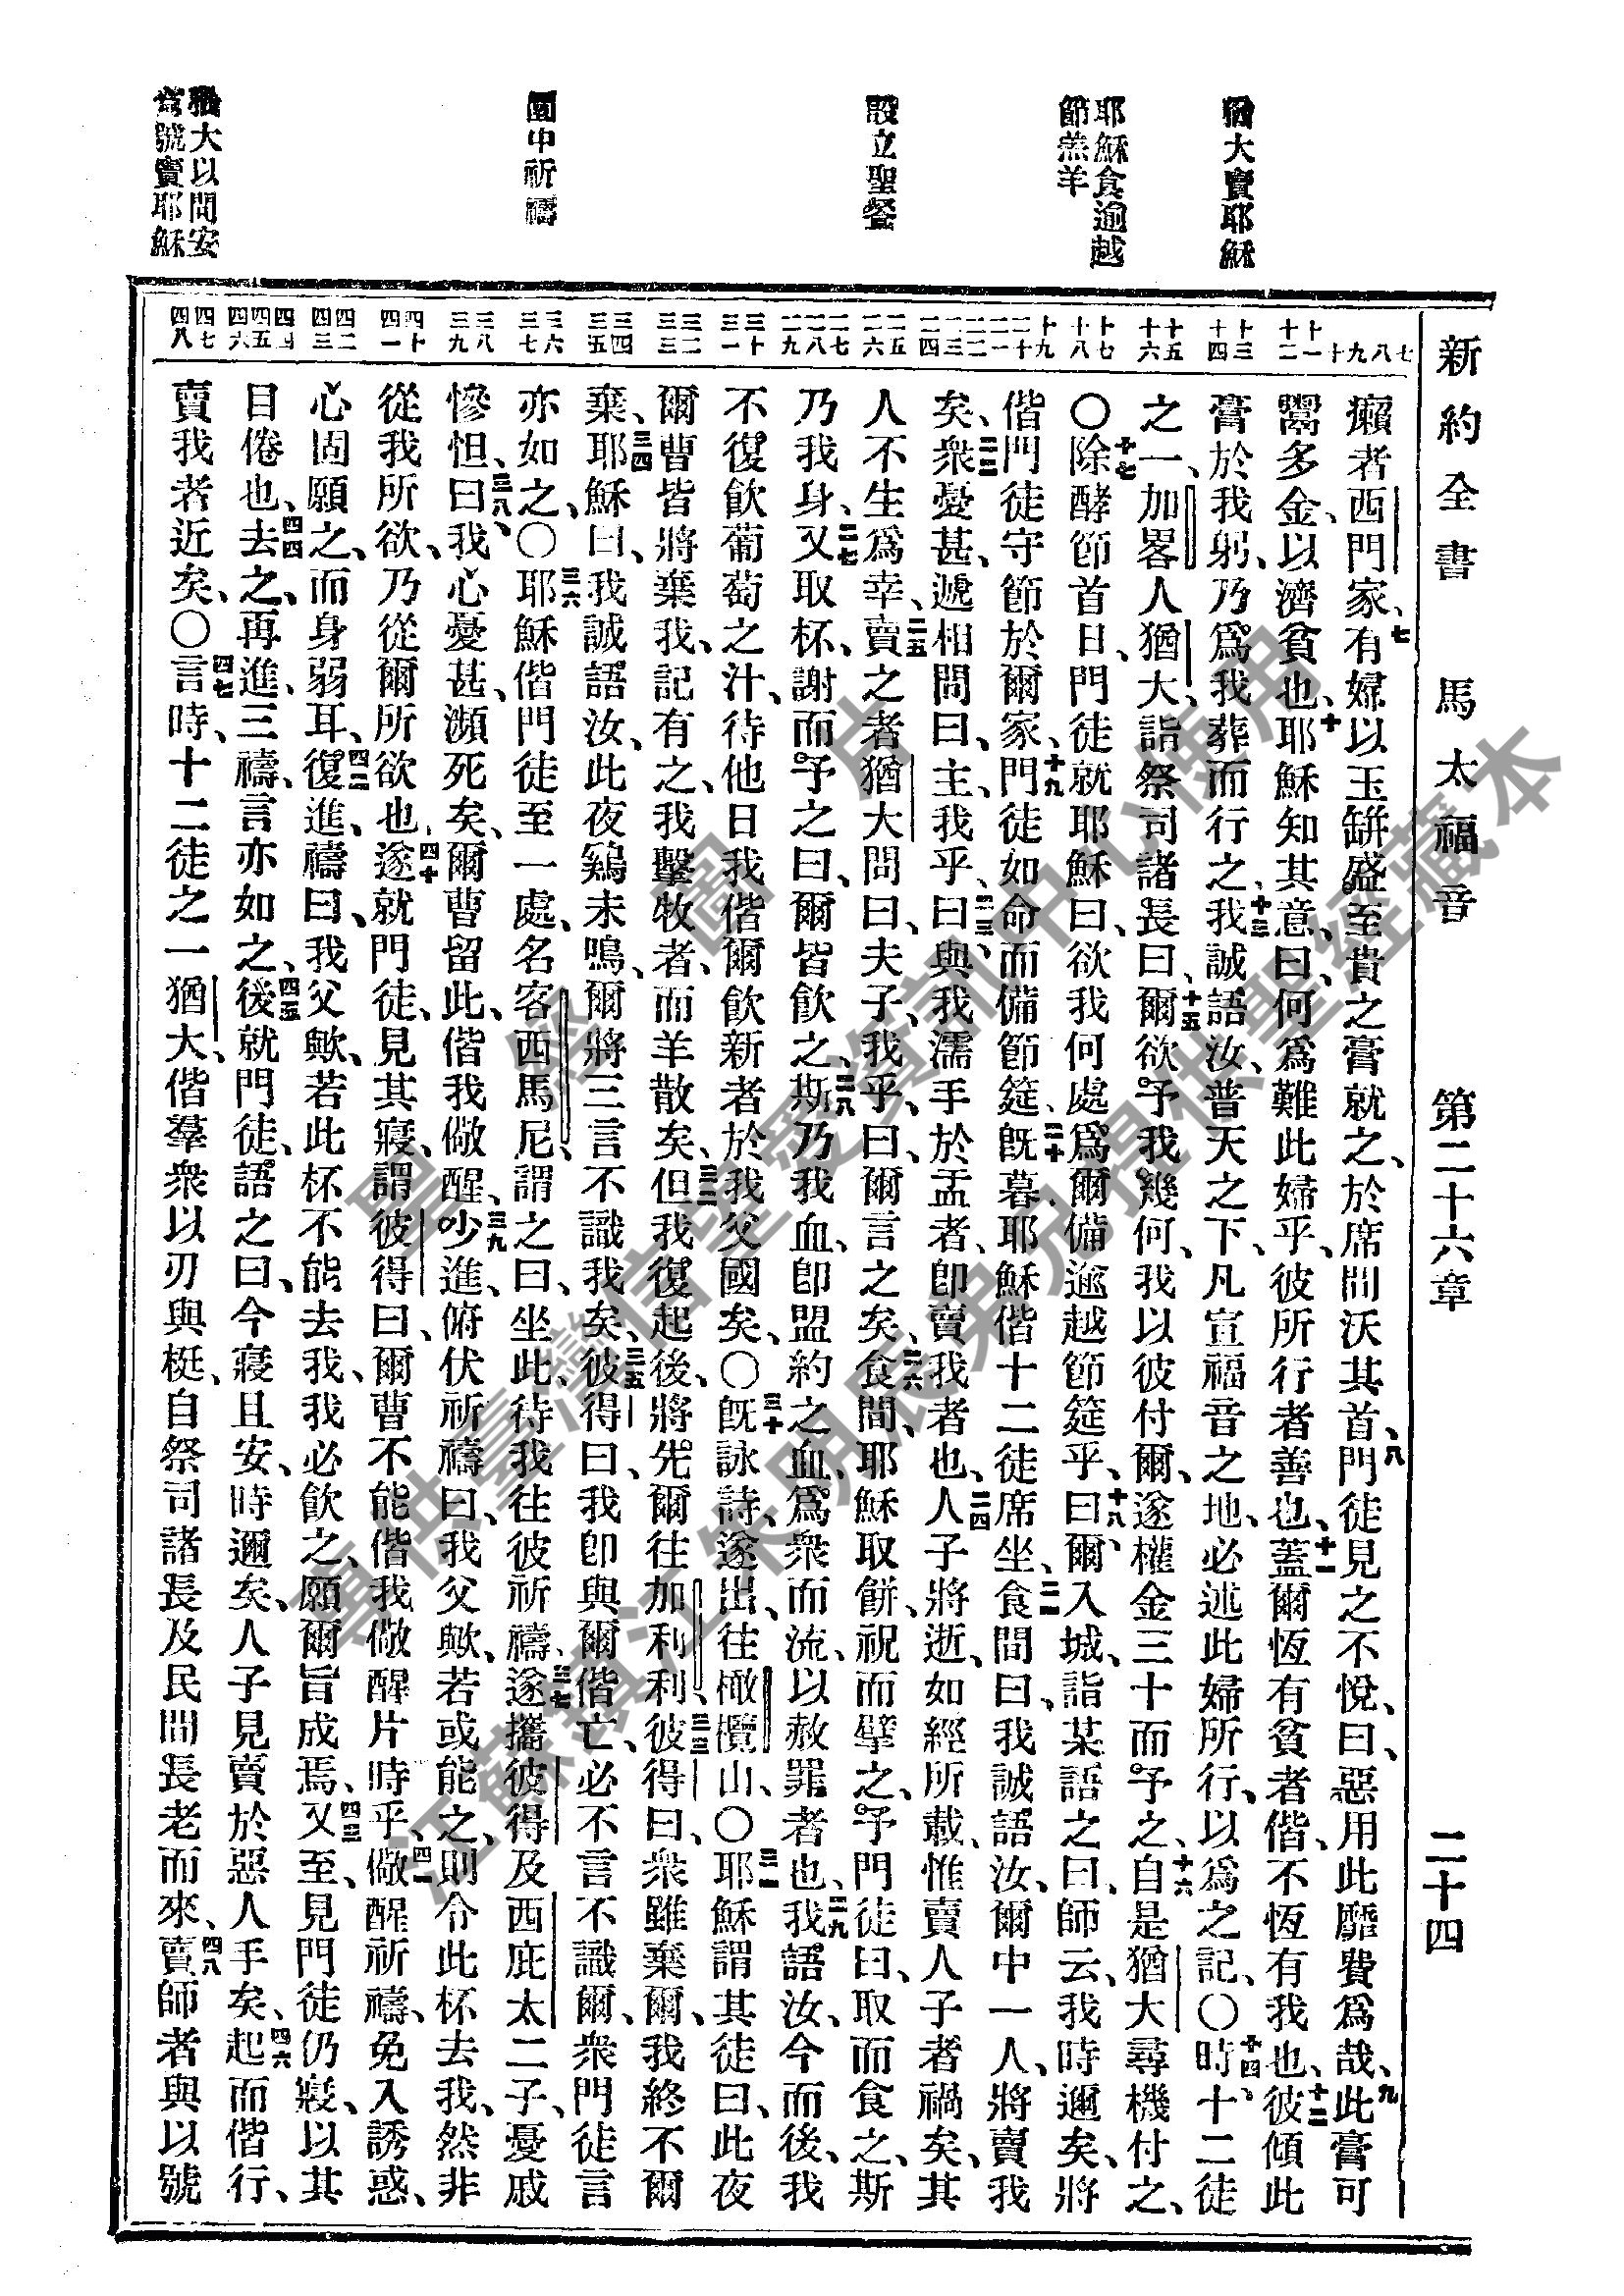 新約全書 馬太福音 第二十六章 二十四
猶大賣耶穌
耶穌食逾越
節羔羊
設立聖餐
園中祈禱
猶大以問安
為號賣耶穌
七 八 九 十 十一 十二 十三 十四 十五 十六 十七 十八 十九 二十 二一 二二 二三 二四 二五 二六 二七 二八 二九 三十 三一 三二 三三 三四 三五 三六 三七 三八 三九 四十 四一 四二 四三 四四 四五 四六 四七 四八
癩者西門家、七有婦以玉缾盛至貴之膏就之、於席間沃其首、八門徒見之不悅、曰、惡用此靡費爲哉、九此膏可
鬻多金、以濟貧也、十耶穌知其意、曰、何爲難此婦乎、彼所行者善也、十一蓋爾恆有貧者偕、不恆有我也、十二彼傾此
膏於我躬、乃爲我葬而行之、十三我誠語汝、普天之下、凡宣福音之地、必述此婦所行、以爲之記、〇十四時、十二徒
之一、加畧人猶大、詣祭司諸長曰、十五爾欲予我幾何、我以彼付爾、遂權金三十而予之、十六自是猶大尋機付之、
〇十七除酵節首日、門徒就耶穌曰、欲我何處爲爾備逾越節筵乎、十八曰、爾入城、詣某語之曰、師云、我時邇矣、將
偕門徒守節於爾家、十九門徒如命而備節筵、二十旣暮、耶穌偕十二徒席坐、二一食間曰、我誠語汝、爾中一人、將賣我
矣、二二衆憂甚、遞相問曰、主、我乎、二三曰、與我濡手於盂者、卽賣我者也、二四人子將逝、如經所載、惟賣人子者禍矣、其
人不生爲幸、二五賣之者猶大問曰、夫子、我乎、曰、爾言之矣、二六食間、耶穌取餅、祝而擘之、予門徒曰、取而食之、斯
乃我身、二七又取杯、謝而予之曰、爾皆飲之、二八斯乃我血、卽盟約之血、爲衆而流、以赦罪者也、二九我語汝、今而後、我
不復飲葡萄之汁、待他日我偕爾飲新者於我父國矣、〇三十旣詠詩、遂出、往橄欖山、〇三一耶穌謂其徒曰、此夜
爾曹皆將棄我、記有之、我擊牧者、而羊散矣、三二但我復起後、將先爾往加利利、三三彼得曰、衆雖棄爾、我終不爾
棄、三四耶穌曰、我誠語汝、此夜鷄未鳴、爾將三言不識我矣、三五彼得曰、我卽與爾偕亡、必不言不識爾、衆門徒言
亦如之、〇三六耶穌偕門徒至一處、名客西馬尼、謂之曰、坐此、待我往彼祈禱、三七遂攜彼得及西庇太二子、憂戚
慘怛、三八曰、我心憂甚、瀕死矣、爾曹留此、偕我儆醒、三九少進、俯伏祈禱曰、我父歟、若或能之、則令此杯去我、然非
從我所欲、乃從爾所欲也、四十遂就門徒、見其寢、謂彼得曰、爾曹不能偕我儆醒片時乎、四一儆醒祈禱、免入誘惑、
心固願之、而身弱耳、四二復進、禱曰、我父歟、若此杯不能去我、我必飲之、願爾旨成焉、四三又至、見門徒仍寢、以其
目倦也、四四去之、再進、三禱、言亦如之、四五後就門徒、語之曰、今寢且安、時邇矣、人子見賣於惡人手矣、四六起而偕行、
賣我者近矣、〇四七言時、十二徒之一猶大、偕羣衆以刃與梃、自祭司諸長及民間長老而來、四八賣師者與以號
聖經圖片
專供臺灣信望愛資訊中心使用
江蘇鎮江朱明辰弟兄提供聖經藏本